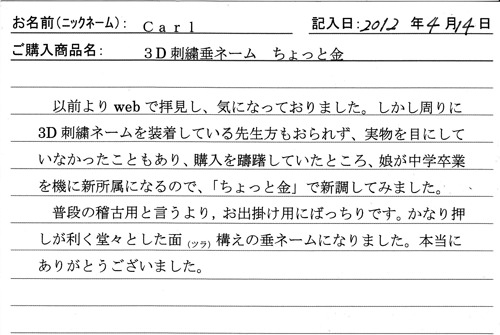 お名前(ニックネーム): Carl 記入日: 2012 年 4月 14日
ご購入商品名: 3D刺繍垂ネーム ちょっと金
以前よりwebで拝見し、気になっておりました。しかし周りに
3D刺繍ネームを装着している先生方もおられず、実物を目にして
いなかったこともあり、購入を躊躇していたところ、娘が中学卒業
を機に新所属になるので、「ちょっと金」で新調してみました。
普段の稽古用と言うより，お出掛け用にばっちりです。かなり押
しが利く堂々とした面(ツラ)構えの垂ネームになりました。本当に
ありがとうございました。